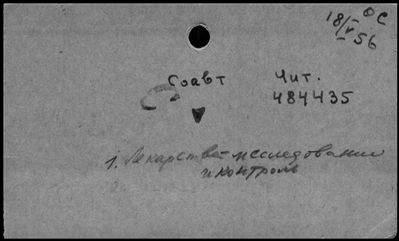 18/V 56 ОС
Соавт Чит.
484435
1. Лекарства - исследование
и контроль